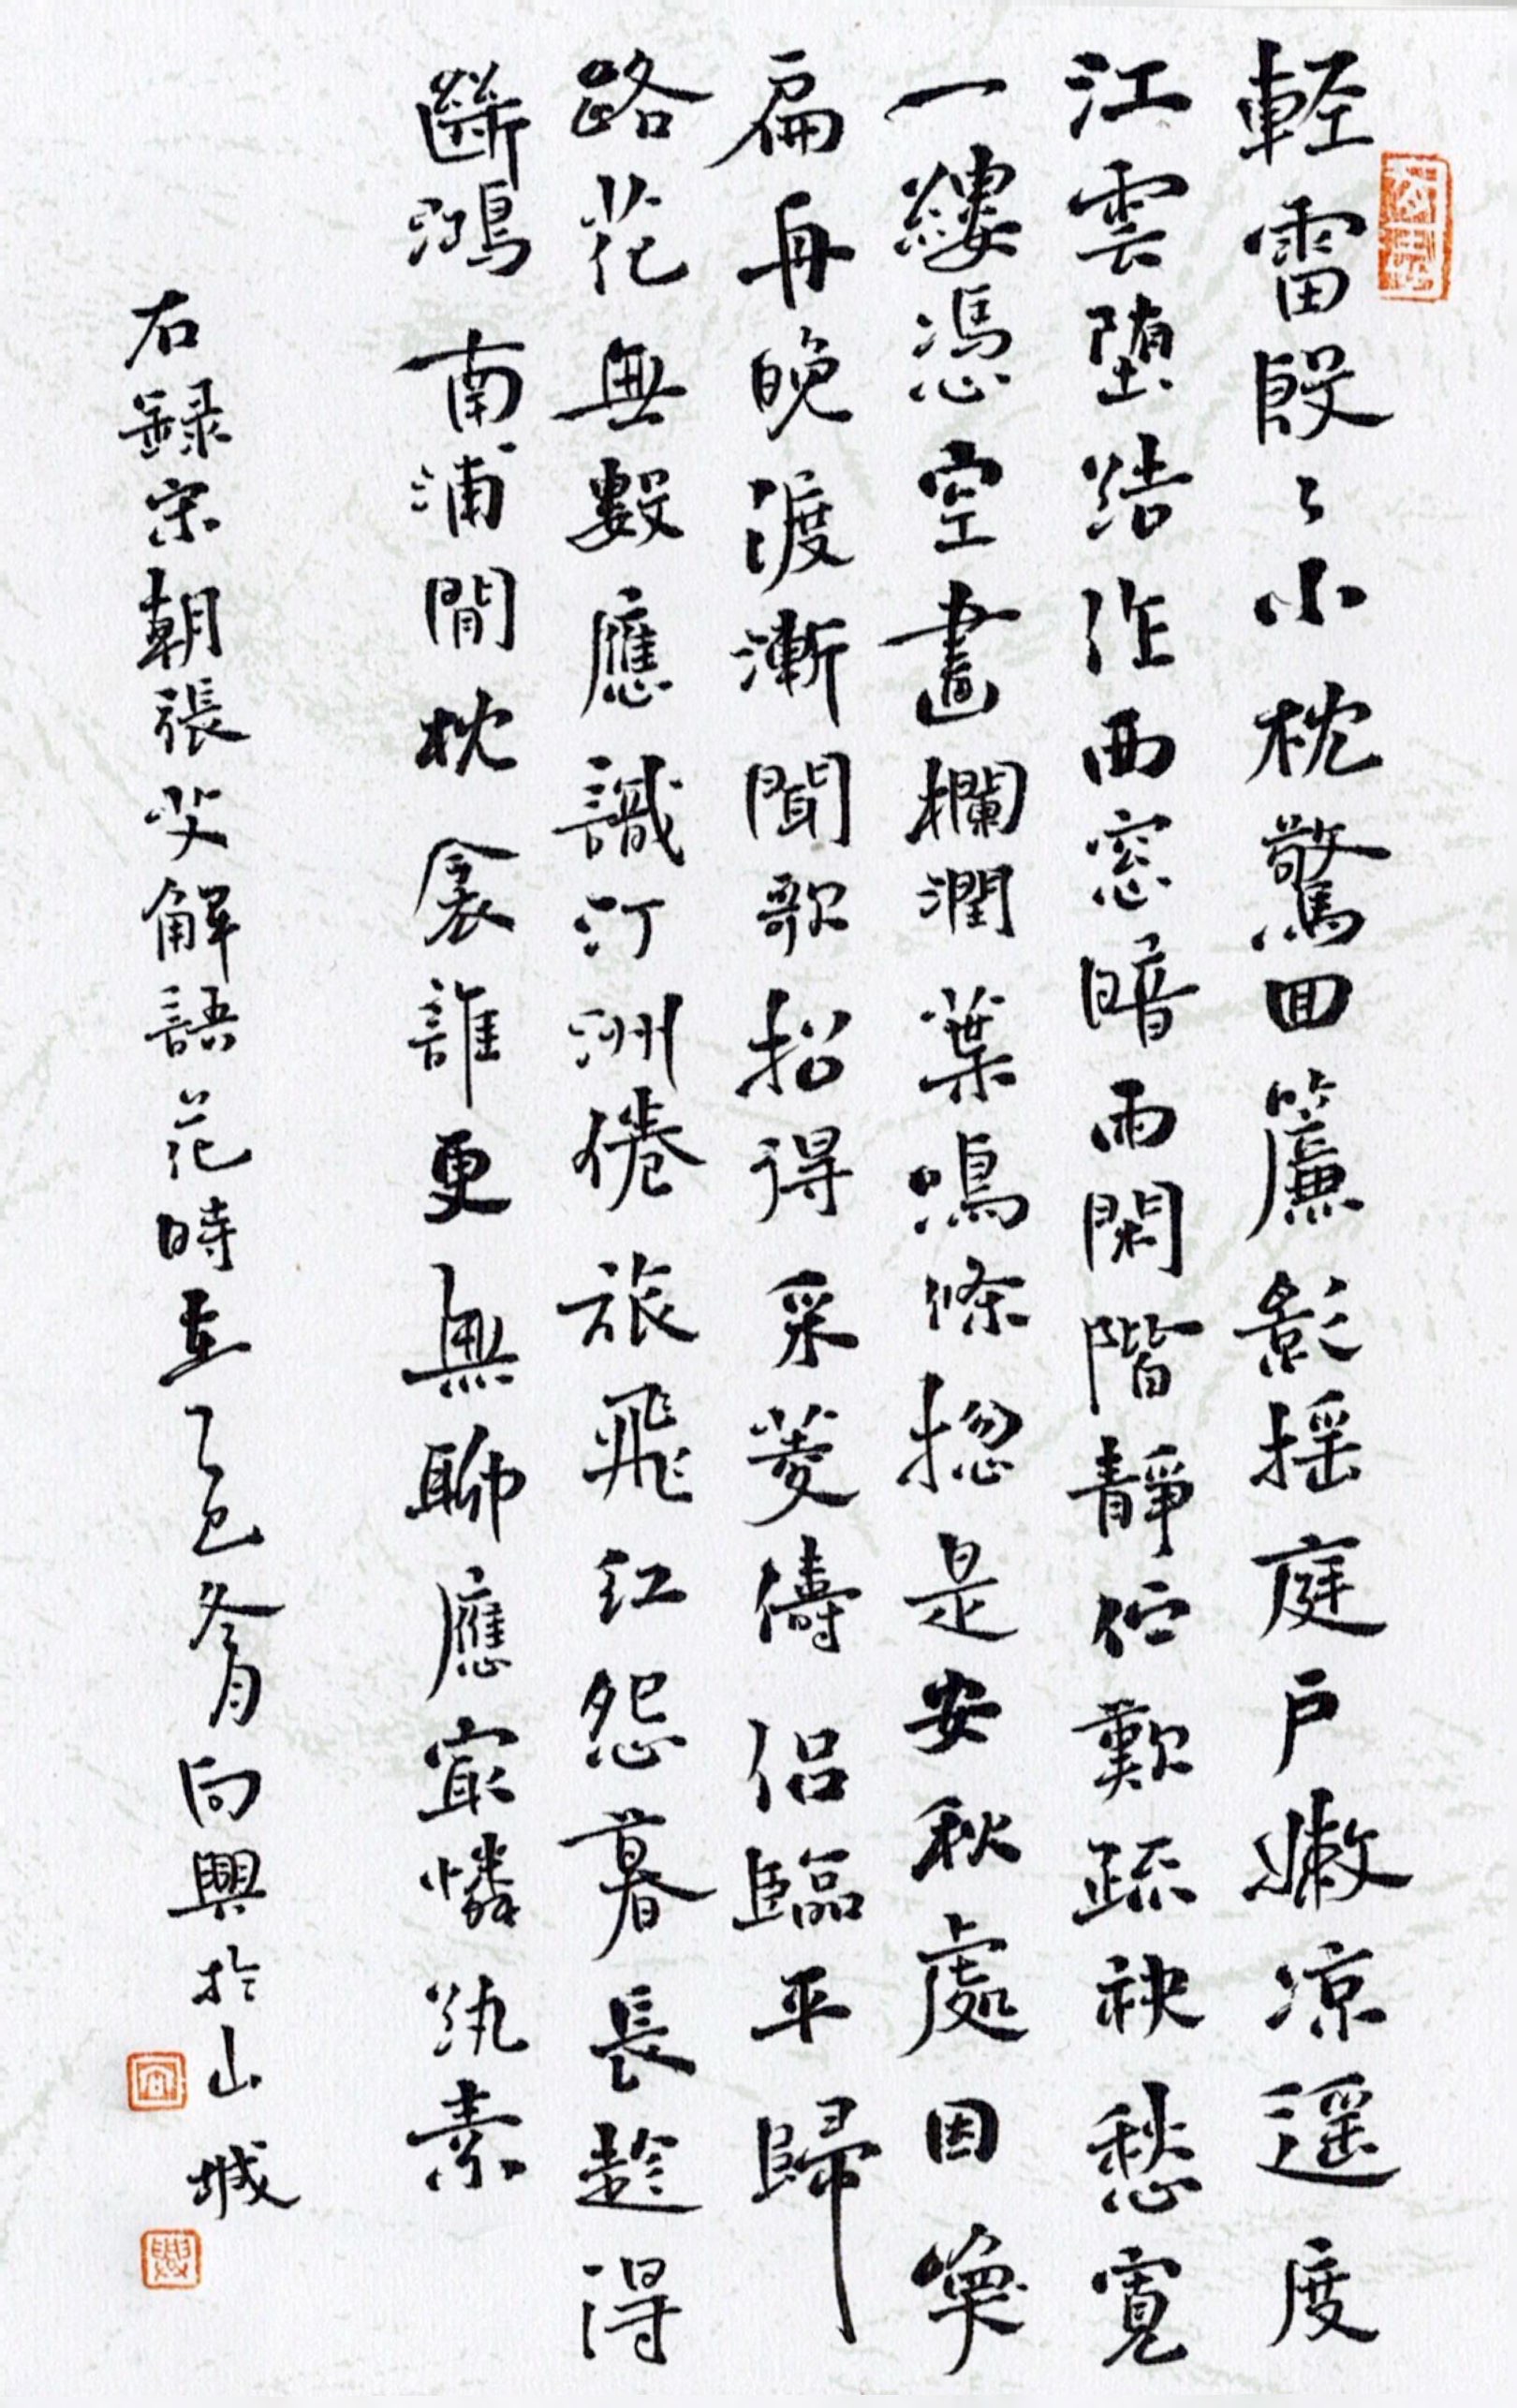 輕雷殷〻小枕驚回簾影搖庭戶嫩涼遥度
江雲墮踏作西窓暗雨閑階靜佇歎疏袂愁寬
一縷憑空畫欄潤葉鳴條揔是安秋處因喚
扁舟晚渡漸聞歌招得采菱儔侣臨平歸
路花無數應識汀洲倦旅飛紅怨暮長趁得
斷鴻南浦閒枕衾誰更無聊應寂憐紈素
右録宋朝張斐解語花時在乙巳冬月向興於山城